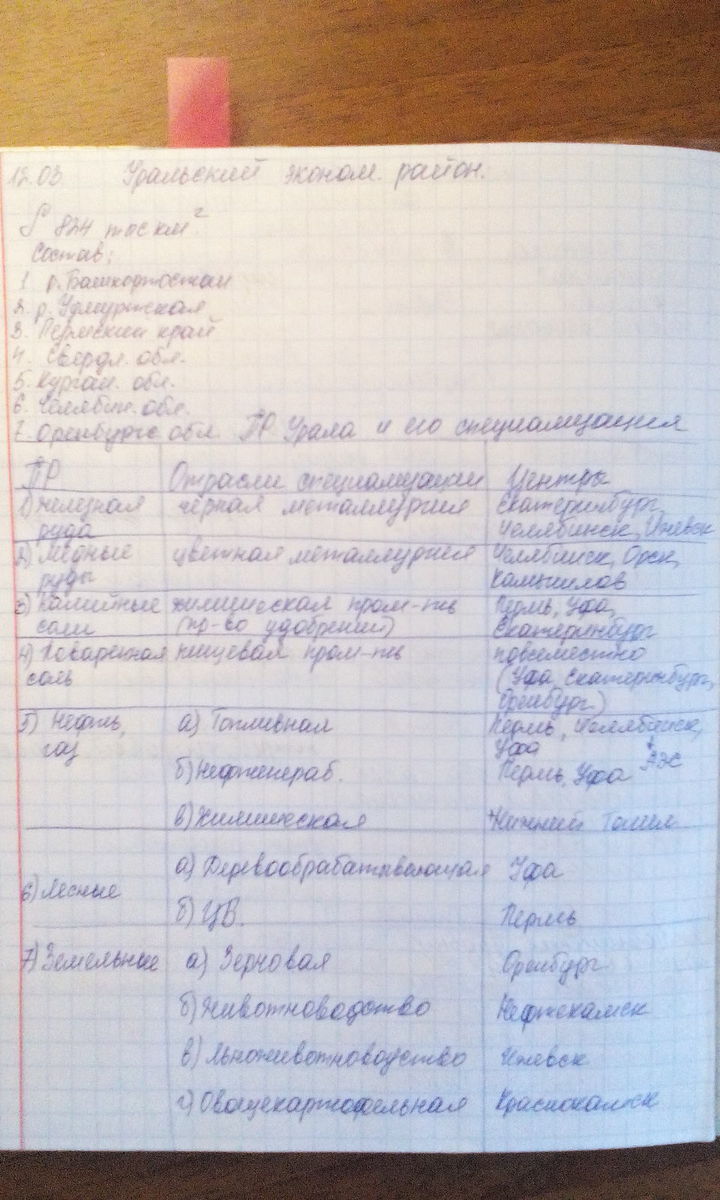 12.03 Уральский эконом. район.
S 824 тос км²
Состав:
1. р. Башкортостан
2. р. Удмуртская
3. Пермский край
4. Свердл. обл.
5. Курган. обл.
6. Челябин. обл.
7. Оренбургс обл. ПР Урала и его специализация
ПР Отрасли специализации Центры
1) железная чёрная металлургия Екатеринбург,
руда Челябинск, Ижевск
2) Медные цветная металлургия Челябинск, Орск,
руды
3) Калийные химическая пром-ть Пермь, Уфа,
соли (пр-во удобрений) Екатеринбург
4) Поваренная пищевая пром-ть повсеместно
соль (Уфа, Екатеринбург,
Оренбург)
5) Нефть, а) Топливная Пермь, Челябинск,
газ Уфа
б) Нефтеперераб. Пермь, Уфа АЭС
в) Химическая Нижний Тагил
а) Деревообрабатывающая Уфа
6) Лесные
б) ЦБ. Пермь
7) Земельные а) Зерновая Оренбург
б) Животноводство Нефтекамск
в) Льноживотноводство Ижевск
г) Овощекартофельная Краснокамск